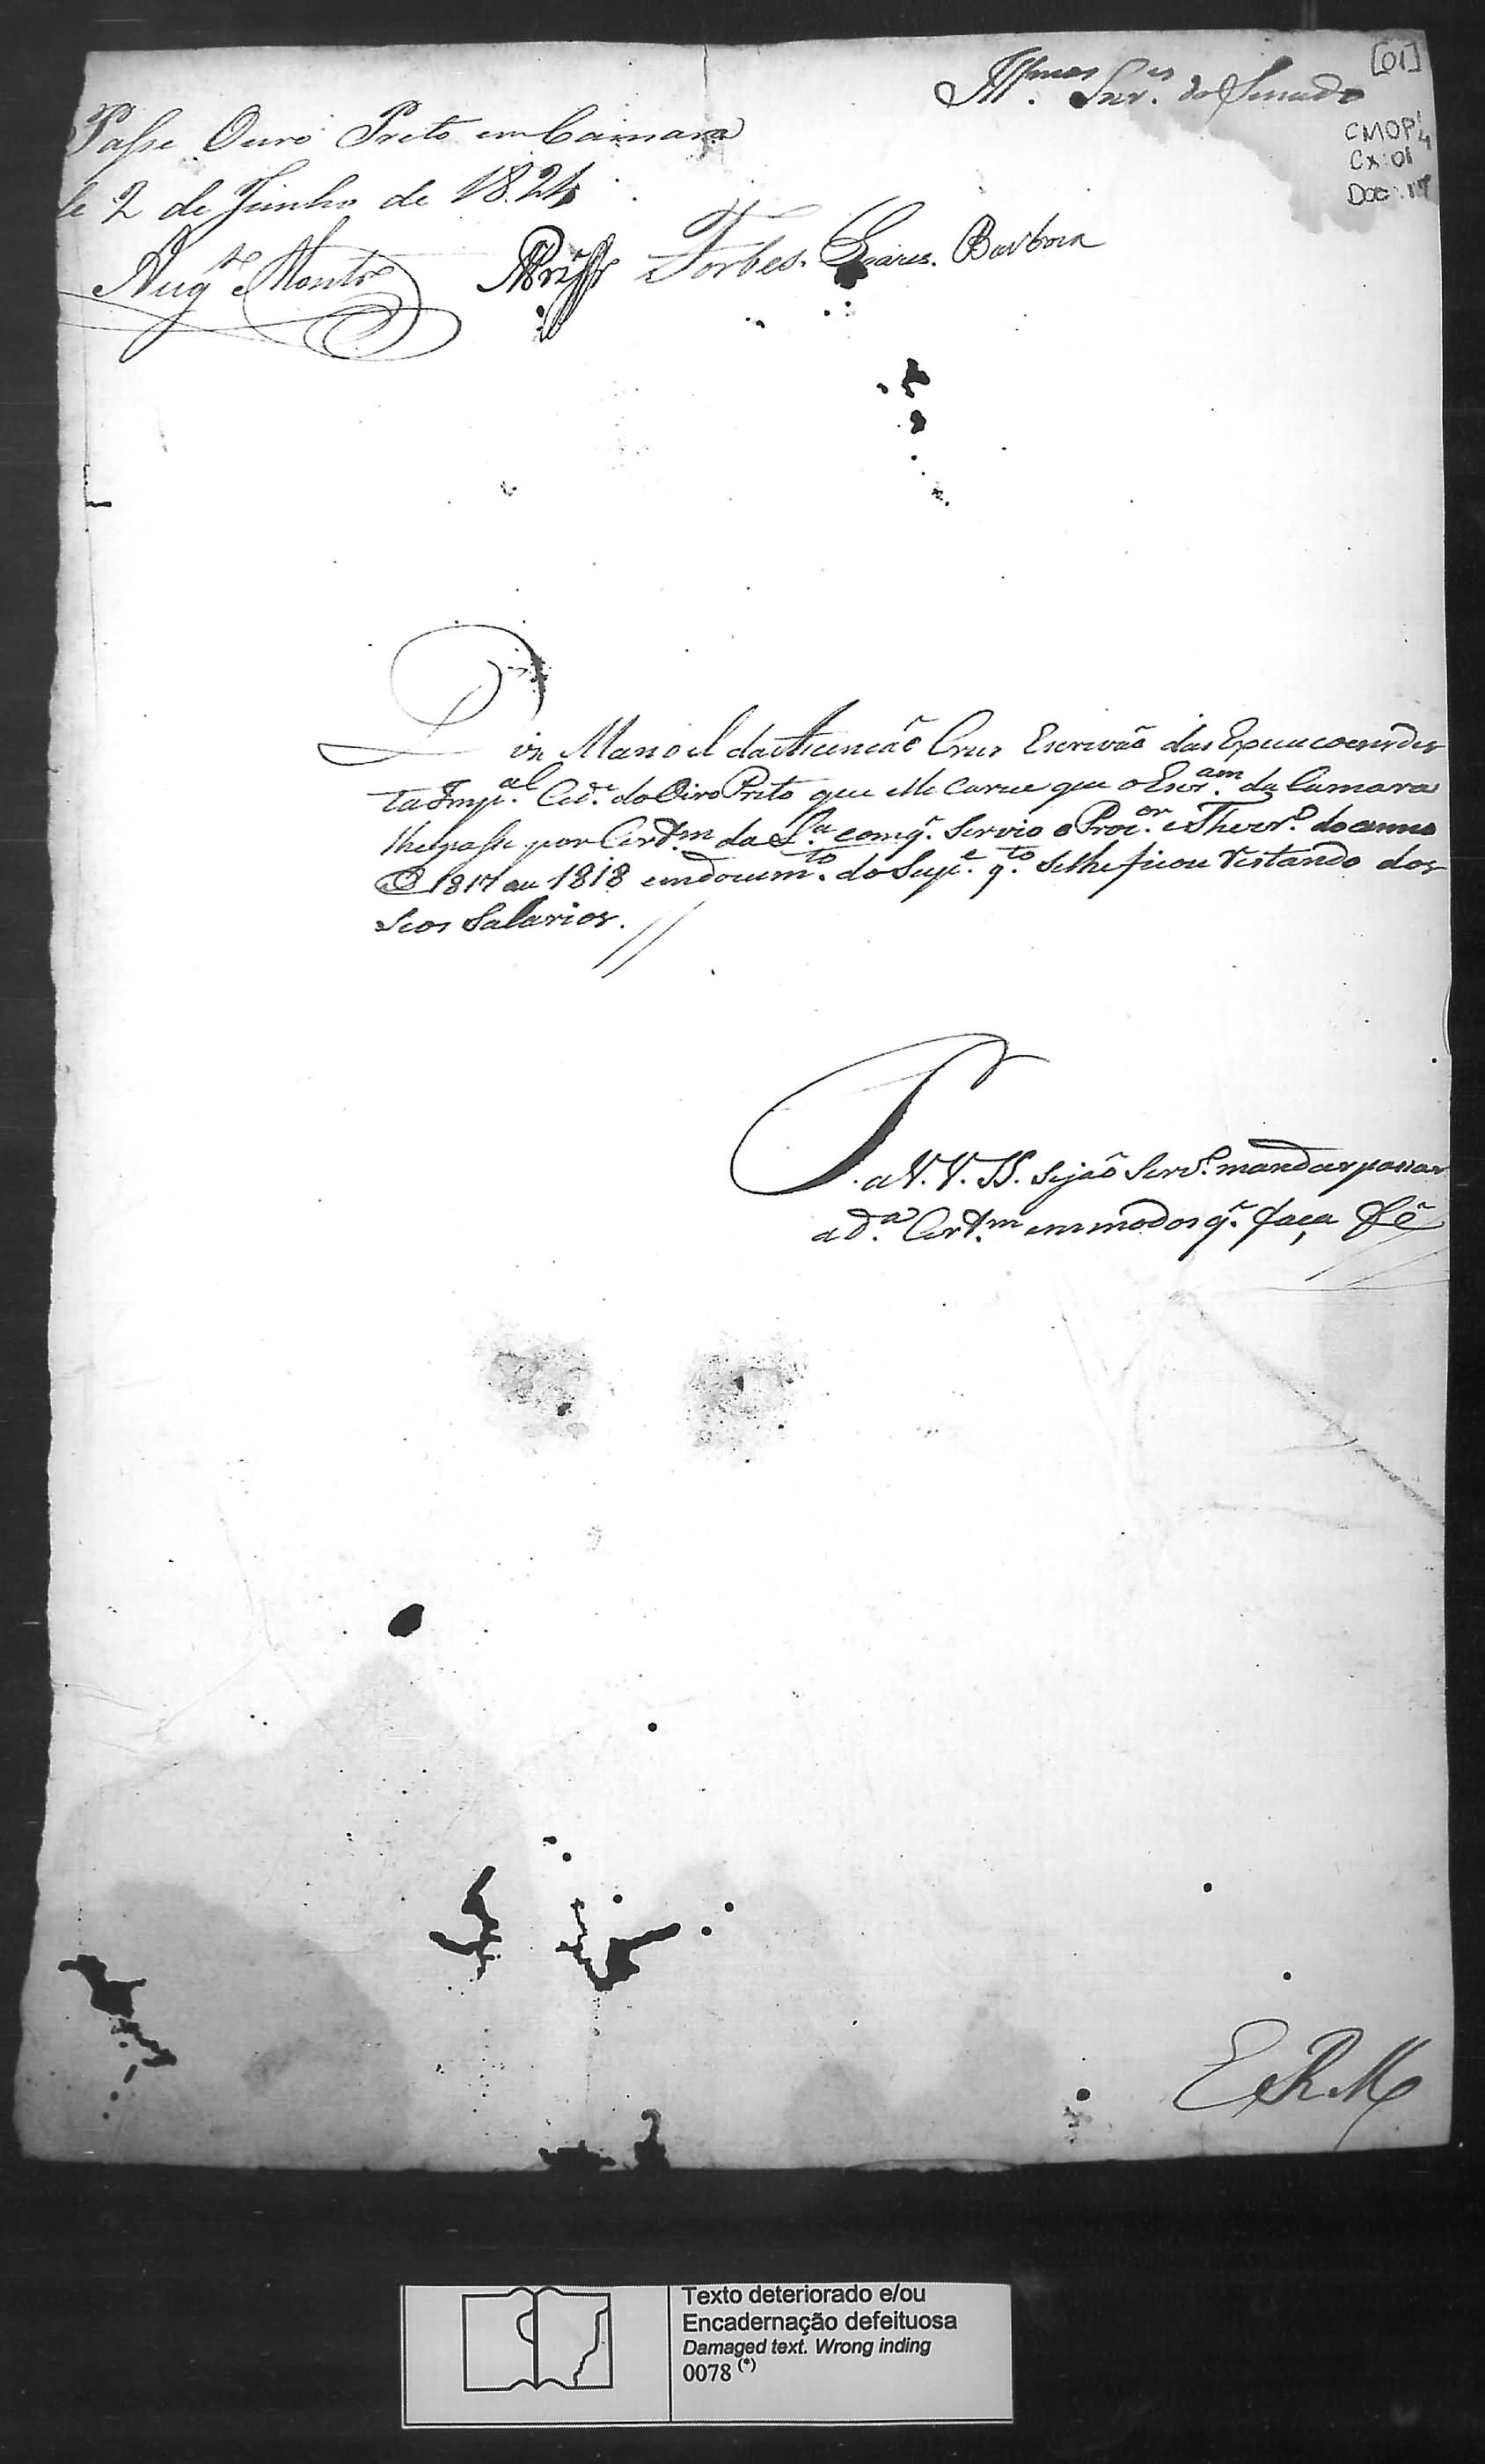 [01]
Ill.mos Snr.es do Senado
CMOP
Cx: 01
Doc: 17
Passe Ouro Preto em Camara
de 2 de Junho de 1824
Forbes. Soares. Barboza
Diz Manoel da Ascenção Cruz Escrivão das Execucoens des
ta Imp.al Cid.e do Oiro Preto que elle carece que o Escr.am da Camara
lhe passe por Cert.m da com q. Servio o Proc.or e Thezr.o do anno
1817 au 1818 em docum.to do Sup.e q.to se lhe ficou restando dos
seos Salarios.
P. a V. V. SS. sejão Serv.os mandar passar
a d.a Cert.m em modos q.e faça fé
E R M
Texto deteriorado e/ou
Encadernação defeituosa
Damaged text. Wrong inding
0078 (*)